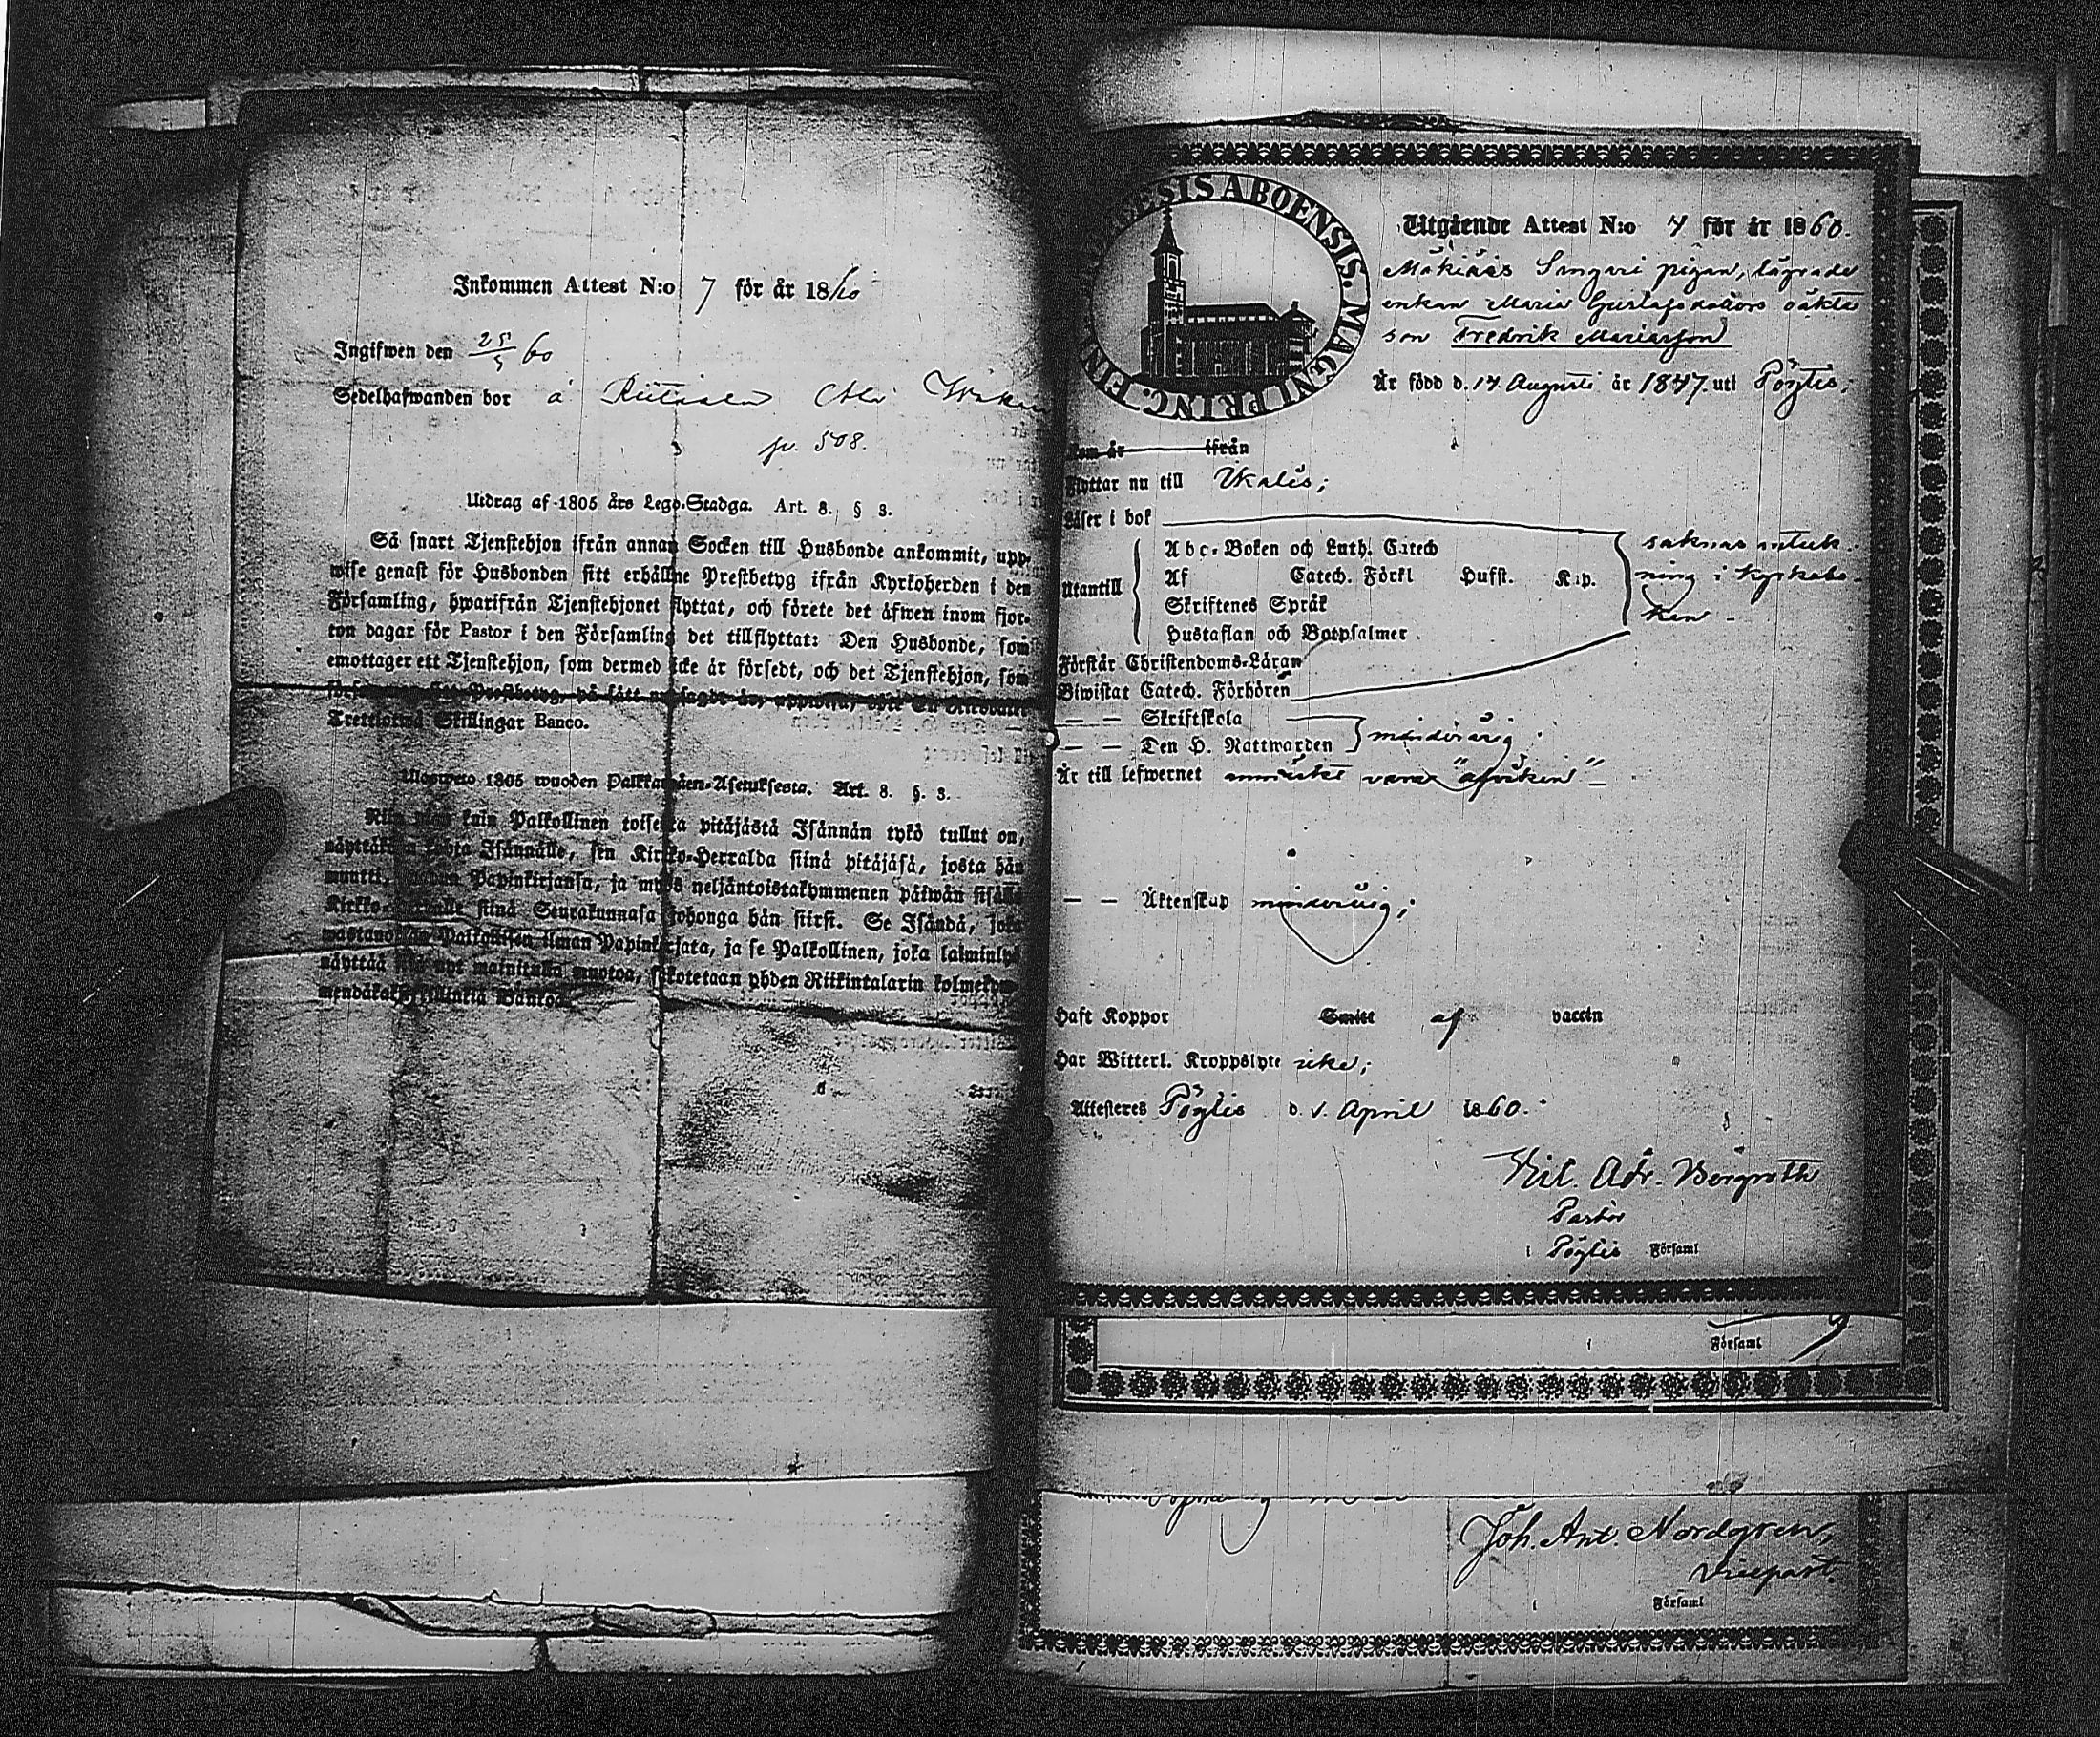 Inkommen Attest N:o 7 för år 1860
Ingifwen den 25/5 60
Sedelhafwanden bor å
p. 508.
Utdrag af 1805 års Lego-Stadga. Art. 8. § 3.
Så snart Tjenstehjon ifrån annan Socken till Husbonde ankommit, upp-
wise genast för Husbonden sitt erhållne Prestbetyg ifrån Kyrkoherden i den
Församling, hwarifrån Tjenstehjonet flyttat, och förete det äfwen inom fjor-
ton dagar för Pastor i den Församling det tillflyttat: Den Husbonde, som
emottager ett Tjenstehjon, som dermed icke är försedt, och det Tjenstehjon, som
Trettiotwå Skillingar Banco.
Ulosweto 1805 wuoden Palkkawäen-Asetuksesta. Art. 8. §. 3.
Niin kuin Palkollinen toisesta pitäjästä Isännän tykö tullut on,
Isännälle, sen Kirkko-Herralda siinä pitäjäsä, josta hän
muutti, Papinkirjansa, ja myös neljäntoistakymmenen päiwän sisällä
Kirkko- siinä Seurakunnasa johonga hän siirsi. Se Isändä, joka
Palkollisen ilman Papinkirjata, ja se Palkollinen, joka laiminlyö
näyttää nyt mainitulla muotoa, sakotetaan yhden Riikintalarin kolmekym-
DIOECESIS ABOENSIS. MAGNI PRINC. FINL.
Utgående Attest N:o 7 för år 1860.
pigan, lägrade
enkan Maria Gustafsdotters oäkta
son Fredrik Mariasson
Är född d. 14 Augusti år 1847. uti Pöytis;
Kom år ifrån
Flyttar nu till Ikalis;
Läser i bok
Utantill
Abc-Boken och Luth. Catech
Af Catech. Förkl Husst. K.p.
Skriftenes Språk
Hustaflan och Botpsalmer.
saknas anteck-
ning i kyrkobo-
ken -
Förstår Christendoms-Läran
Biwistat Catech. Förhören
— — Skriftskola
— — Den H. Nattwarden
minderårig;
Är till lefwernet vara "afviken" -
— — Äktenskap minderårig;
Haft Koppor Smitt af vaccin
Har Witterl. Kroppslyte icke;
Attesteras Pöytis d. 1. April 1860.
Adr. Bergroth
Pastor
i Pöytis Församl
i Församl
Joh. Ant. Nordgren,
Vicepast.
i Församl